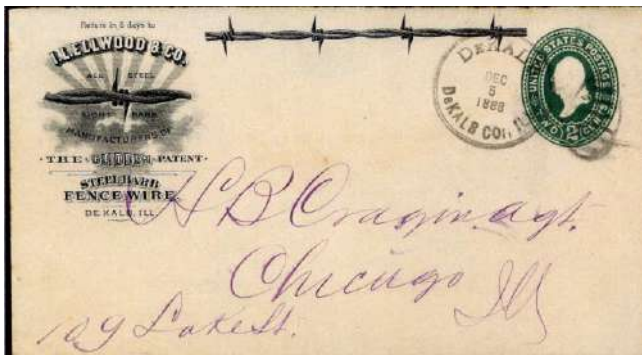 Return in 5 days to
I.L. ELLWOOD & CO.
ALL STEEL
MANUFACTURERS OF
THE GLIDDEN PATENT
STEEL BARB
FENCE WIRE
DE KALB, ILL.
DEKAL
DEC
5
1888
DEKALB CO., ILL
UNITED STATES POSTAGE
TWO 2 CENTS
H B Cragin agt.
Chicago
Ill
109 Lake St.